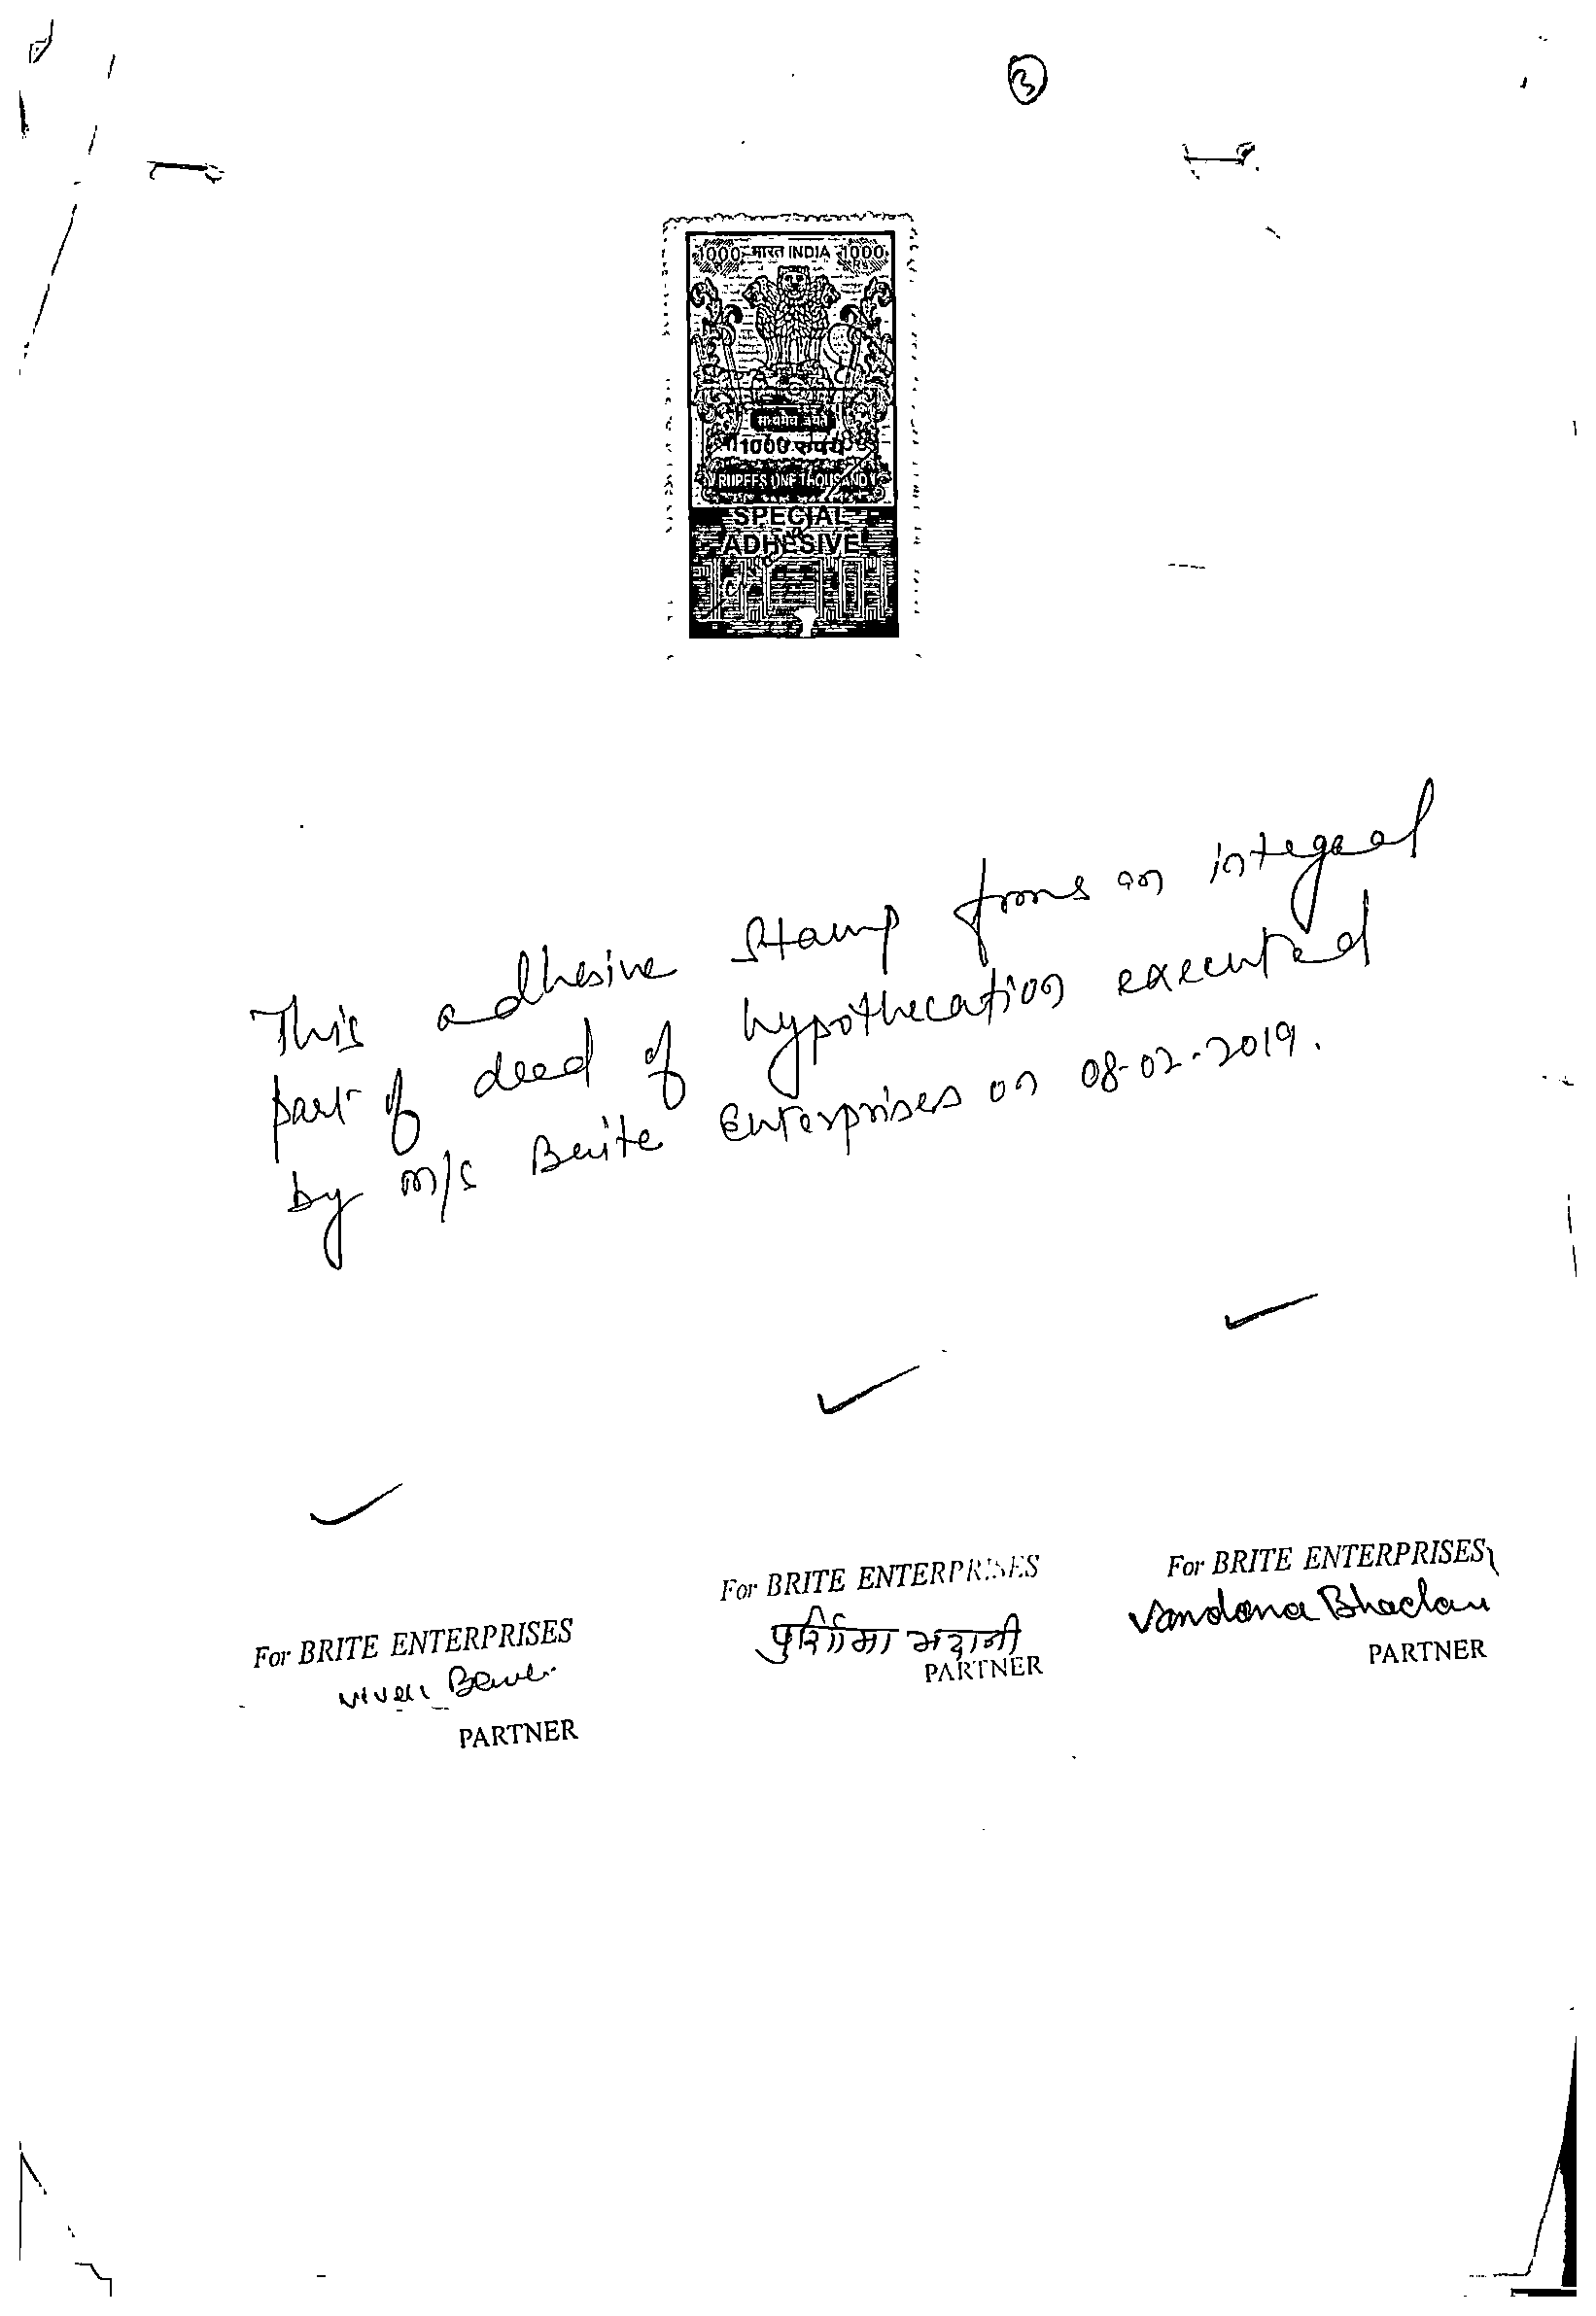 3
1000 भारत INDIA 1000
सत्यमेव जयते
1000 रुपये
RUPEES ONE THOUSAND
SPECIAL
ADHESIVE
This adhesive stamp forms an integral
part of deed of hypothecation executed
by M/s Brite Enterprises on 08-02-2019.
For BRITE ENTERPRISES
पुर्णिमा भदानी
PARTNER
For BRITE ENTERPRISES
Vandana Bhadani
PARTNER
For BRITE ENTERPRISES
PARTNER